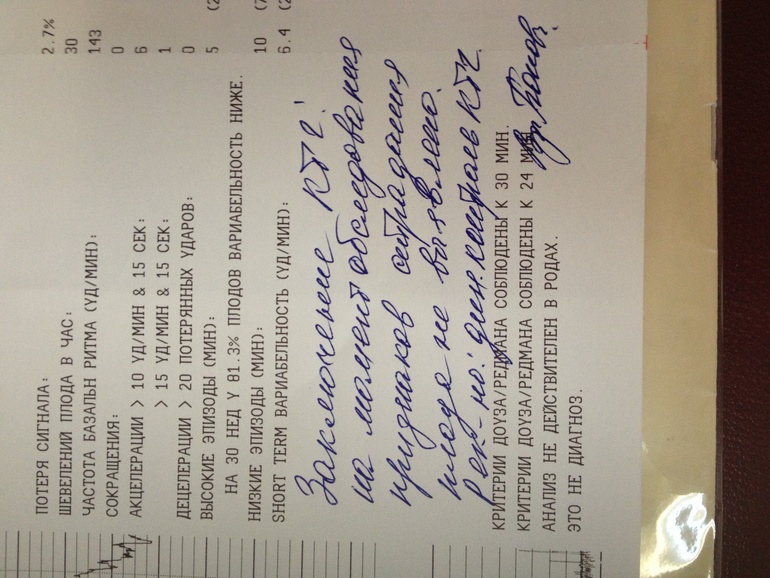 ПОТЕРЯ СИГНАЛА: 2.7%
ШЕВЕЛЕНИЙ ПЛОДА В ЧАС: 30
ЧАСТОТА БАЗАЛЬН РИТМА (УД/МИН): 143
СОКРАЩЕНИЯ: 0
АКЦЕЛЕРАЦИИ > 10 УД/МИН & 15 СЕК: 6
> 15 УД/МИН & 15 СЕК: 1
ДЕЦЕЛЕРАЦИИ > 20 ПОТЕРЯННЫХ УДАРОВ: 0
ВЫСОКИЕ ЭПИЗОДЫ (МИН): 5 (2
НА 30 НЕД У 81.3% ПЛОДОВ ВАРИАБЕЛЬНОСТЬ НИЖЕ.
НИЗКИЕ ЭПИЗОДЫ (МИН): 10 (7
SHORT TERM ВАРИАБЕЛЬНОСТЬ (УД/МИН): 6.4 (2
Заключение КТГ:
на момент обследования
признаков страдания
плода не выявлено.
Рек-но: дин. контроль КТГ.
КРИТЕРИИ ДОУЗА/РЕДМАНА СОБЛЮДЕНЫ К 30 МИН.
КРИТЕРИИ ДОУЗА/РЕДМАНА СОБЛЮДЕНЫ К 24 МИН.
АНАЛИЗ НЕ ДЕЙСТВИТЕЛЕН В РОДАХ.
ЭТО НЕ ДИАГНОЗ.